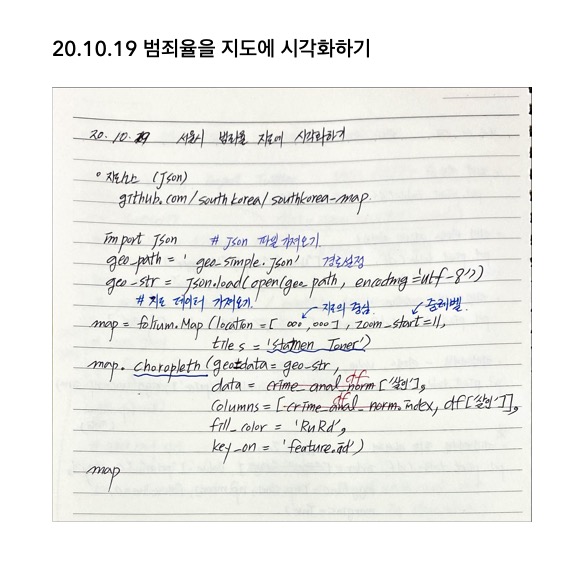 20.10.19 범죄율을 지도에 시각화하기
20. 10. 19 서울시 범죄율 지도에 시각화하기
° 지도소스 (Json)
github.com/south korea/southkorea-map
import Json # Json 파일 가져오기
geo_path = ' geo_simple.json' 경로설정
geo_str = json.load(open(geo_path, encoding='utf-8'))
# 지도 데이터 가져오기 지도의 중심 줌레벨
map = folium.Map (location = [ 000,000] , zoom_start=11,
tiles = 'Stamen Toner')
map. Choropleth (geo_data = geo_str,
df
data = crime_anal_norm ['살인'],
df
columns = [ crime_anal_norm.index, df['살인']],
fill_color = 'RuRd',
key_on = 'feature.id')
map